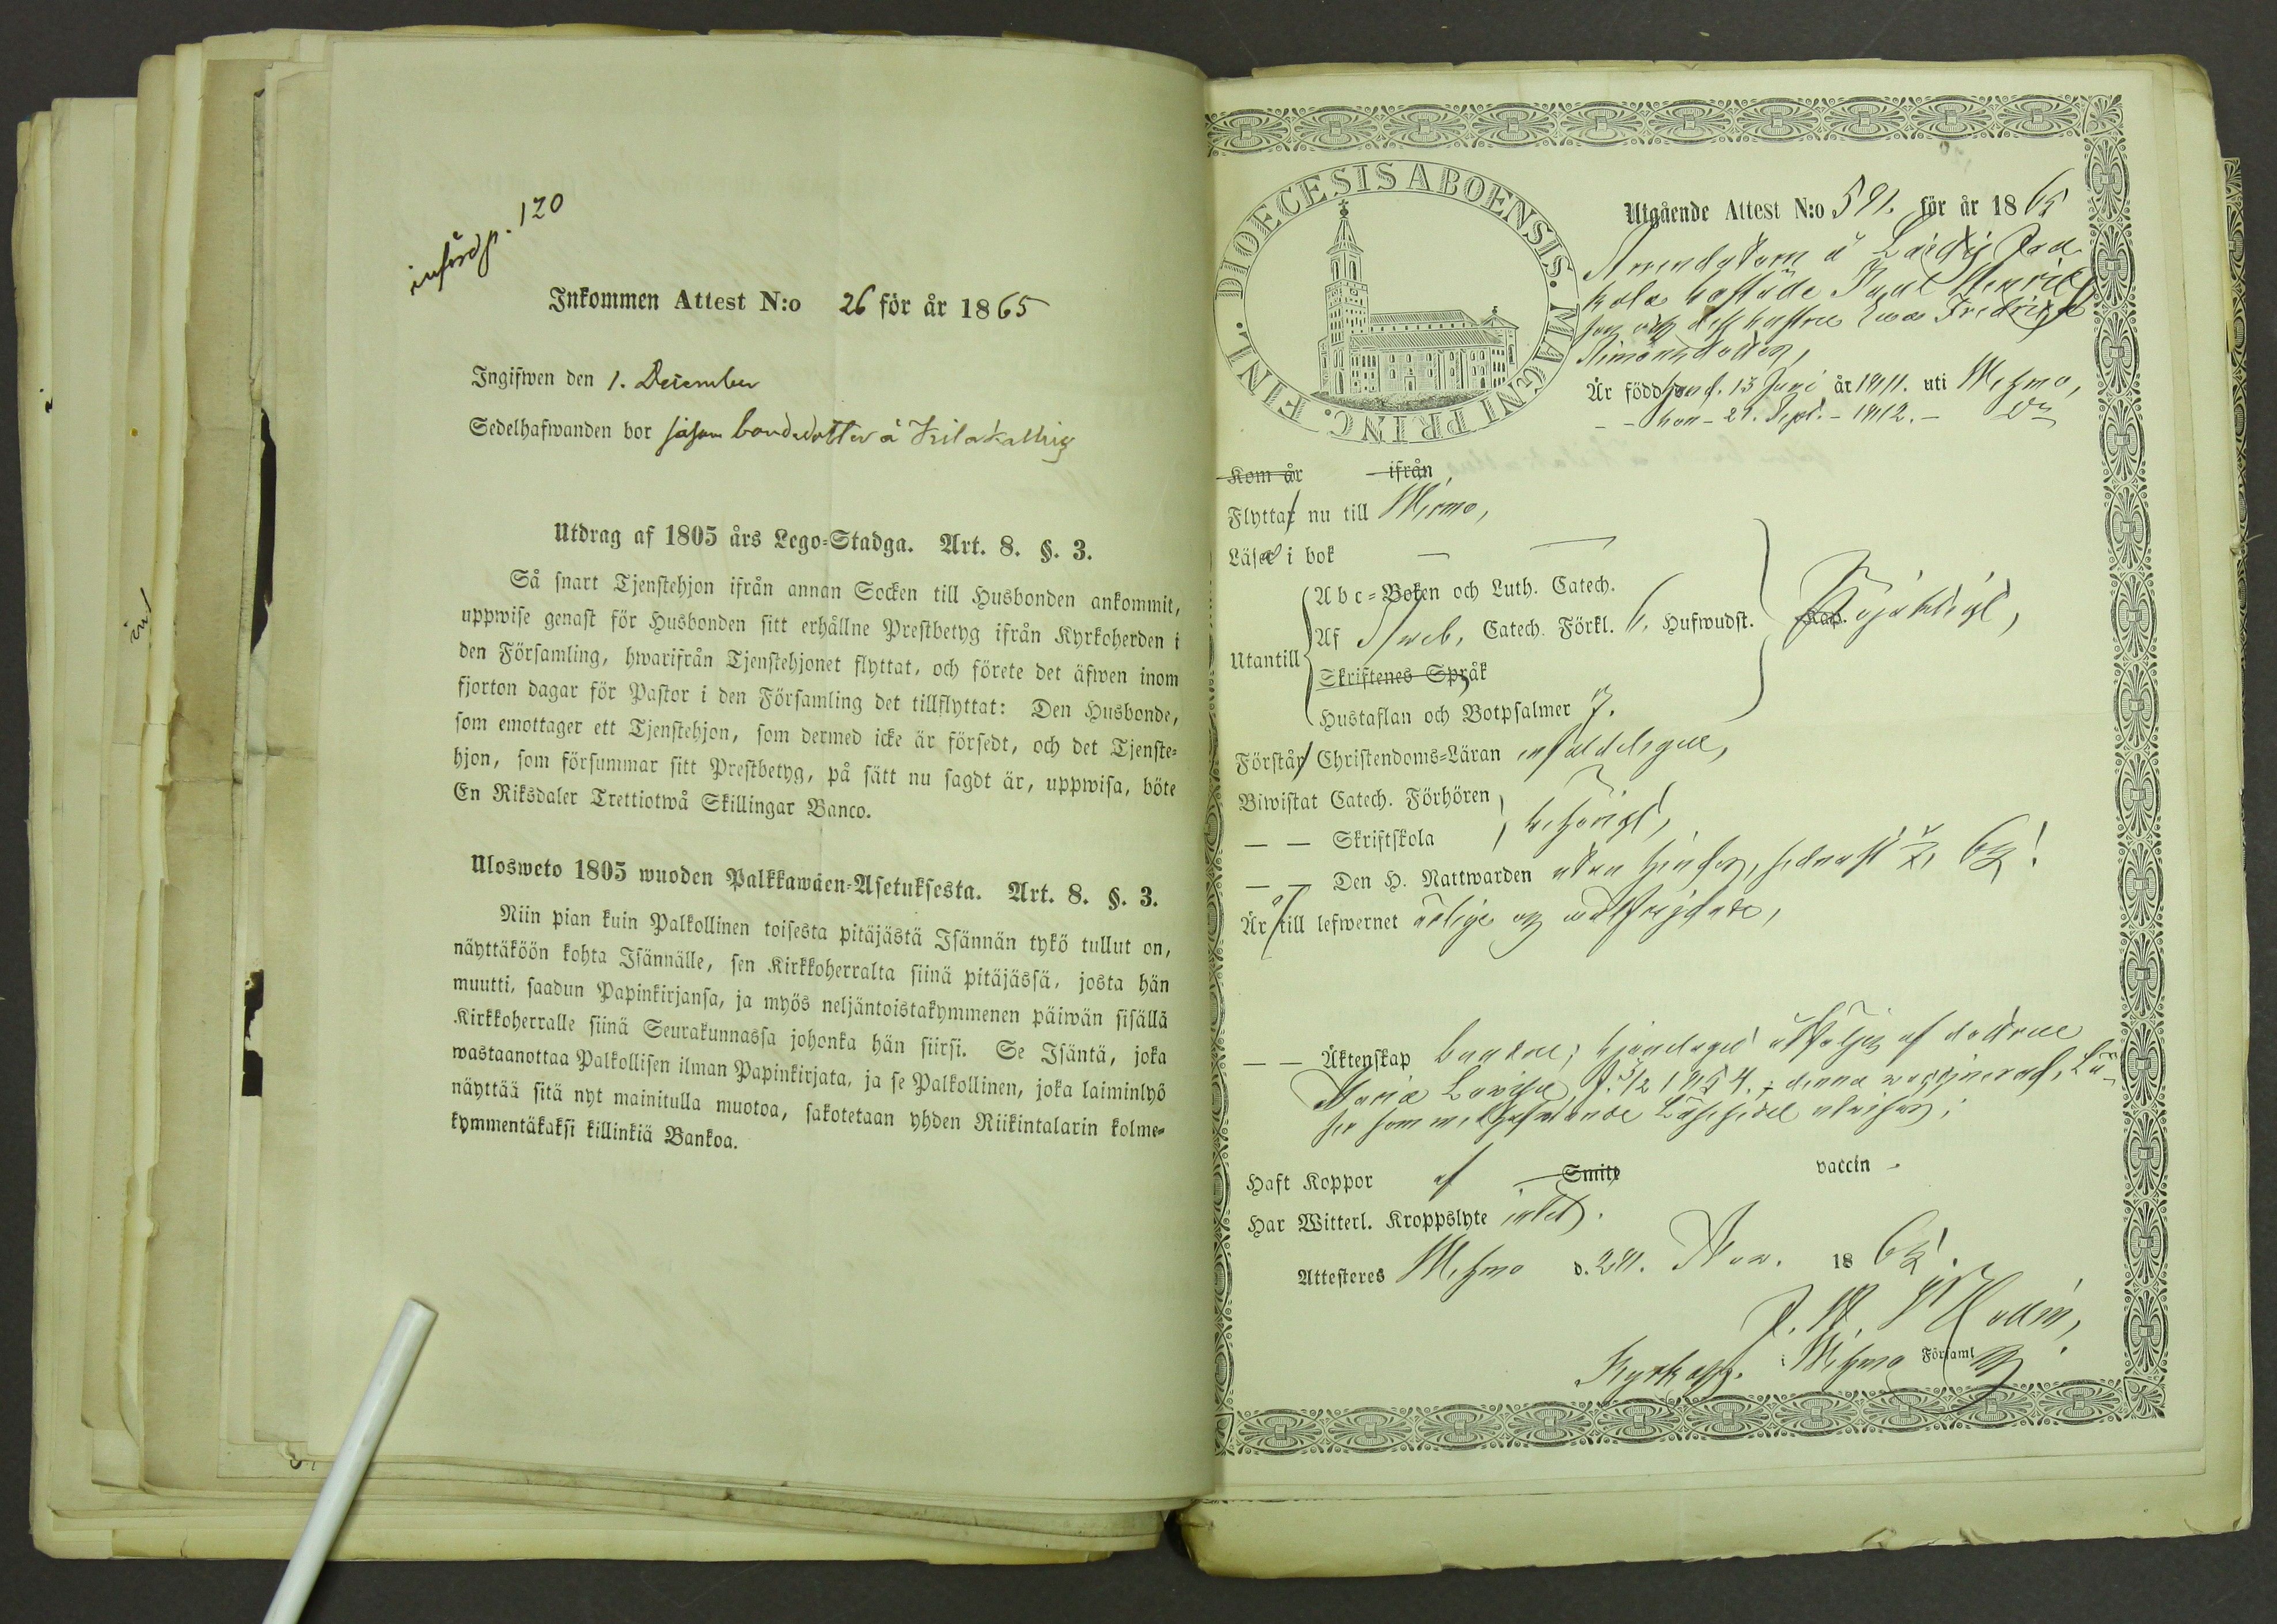 införd p. 120
Inkommen Attest N:o 26 för år 1865
Ingifwen den 1. December
Sedelhafwanden bor såsom bondedotter å Kilakallzig
Utdrag af 1805 års Lego-Stadga. Art. 8. §. 3.
Så snart Tjenstehjon ifrån annan Socken till Husbonden ankommit,
uppwise genast för Husbonden sitt erhållne Prestbetyg ifrån Kyrkoherden i
den Församling, hwarifrån Tjenstehjonet flyttat, och förete det äfwen inom
fjorton dagar för Pastor i den Församling det tillflyttat: Den Husbonde,
som emottager ett Tjenstehjon, som dermed icke är försedt, och det Tjenste-
hjon, som försummar sitt Prestbetyg, på sätt nu sagdt är, uppwisa, böte
En Riksdaler Trettiotwå Skillingar Banco.
Ulosweto 1805 wuoden Palkkawäen-Asetuksesta. Art. 8. §. 3.
Niin pian kuin Palkollinen toisesta pitäjästä Isännän tykö tullut on,
näyttäköön kohta Isännälle, sen Kirkkoherralta siinä pitäjässä, josta hän
muutti, saadun Papinkirjansa, ja myös neljäntoistakymmenen päiwän sisällä
Kirkkoherralle siinä Seurakunnassa johonka hän siirsi. Se Isäntä, joka
wastaanottaa Palkollisen ilman Papinkirjata, ja se Palkollinen, joka laiminlyö
näyttää sitä nyt mainitulla muotoa, sakotetaan yhden Riikintalarin kolme-
kymmentäkaksi killinkiä Bankoa.
DIOECESIS ABOENSIS. MAGNI PRINC. FINL.
Utgående Attest N:o 591. för år 1865
Henric
son och dess hustru Ewa Fredrica
Simonsdotter,
Är född han d. 13 Juni år 1811. uti Wehmo,
- - hon - 21. Sept. - 1812. - Do
Kom år ifrån
Flyttar nu till Wirmo,
Läser i bok
Utantill
Abc-Boken och Luth. Catech.
Af Sweb. Catech. Förkl. 6. Hufwudst. Kap.
Skriftenes Språk
Hustaflan och Botpsalmer 7.
Förstår Christendoms-Läran enfaldeligen,
Biwistat Catech. Förhören
— — Skriftskola behörigt,
— — Den H. Nattwarden utan hinder, sednast 65.
Är till lefwernet ärlige och
— — Äktenskap åtföljes af dottren
Maria Lovisa, f. 3/2 1854.
Haft Koppor af Smitt vaccin
Har Witterl. Kroppslyte intet.
Attesteres Wehmo d. 28. Nov. 1865.
i Wehmo Församl.